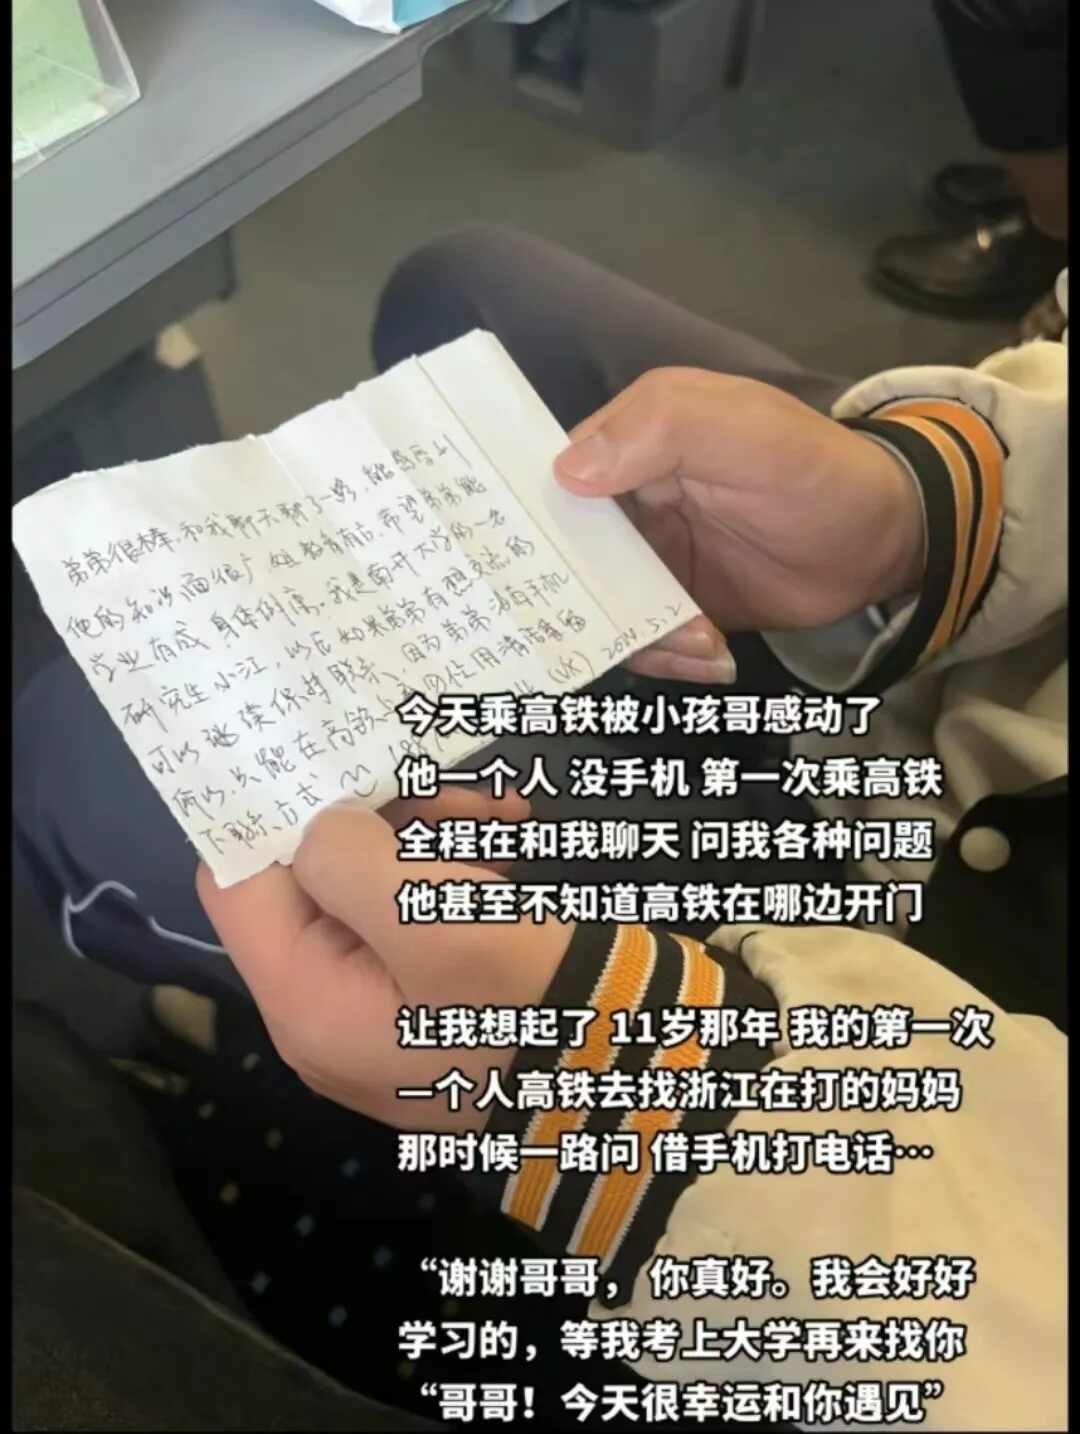 弟弟很棒，和我聊天聊了一路，能感受到
他的知识面很广，姐教育有方，希望弟弟能
学业有成，身体健康。我是南开大学的一名
研究生小江，以后如果弟弟有想交流的
可以继续保持联系、因为弟弟没有手机
所以，只能在高铁上用清洁袋留
下联系方式～
2024.5.2
今天乘高铁被小孩哥感动了
他一个人 没手机 第一次乘高铁
全程在和我聊天 问我各种问题
他甚至不知道高铁在哪边开门
让我想起了 11岁那年 我的第一次
一个人高铁去找浙江在打的妈妈
那时候一路问 借手机打电话…
“谢谢哥哥， 你真好。我会好好
学习的，等我考上大学再来找你
“哥哥！今天很幸运和你遇见”